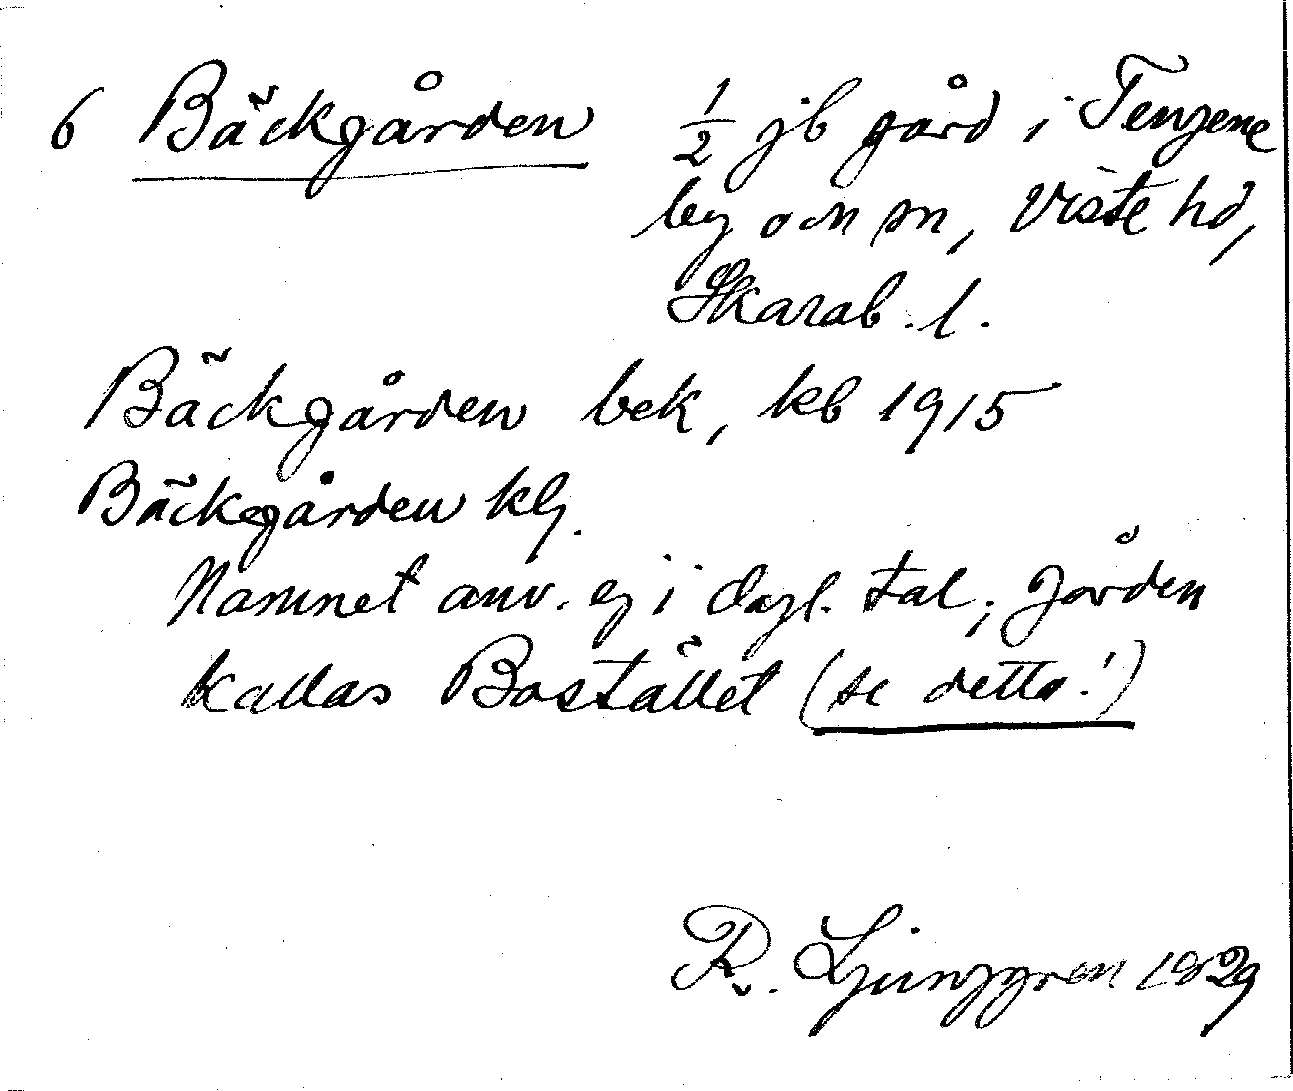 6 Bäckgården ½ jb gård i Tengene
by och sn, Viste hd,
Skarab. l.
Bäckgården bek, kb 1915
Bäckgården klj.
Namnet anv. ej i dagl. tal; gården
kallas Bostället (se detta!)
R. Ljunggren 1929